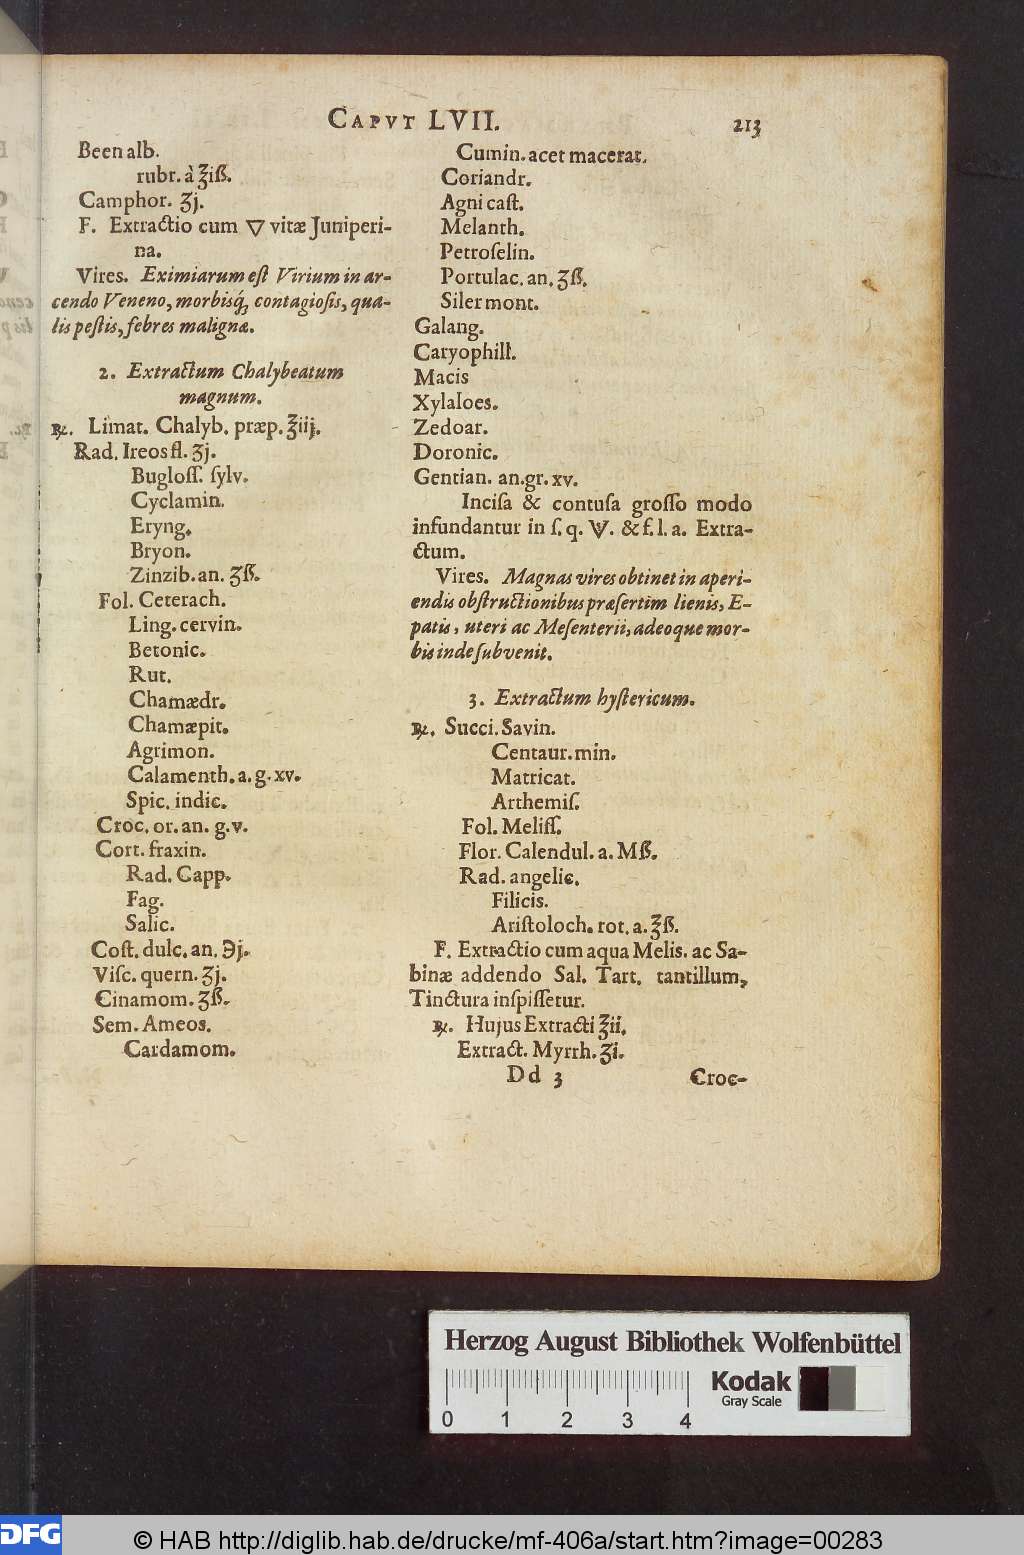 CAPVT LVII. 213
Been alb.
rubr. à ℥iß.
Camphor. ʒj.
F. Extractio cum 🜄 vitæ Juniperi-
na.
Vires. Eximiarum eſt Virium in ar-
cendo Veneno, morbisq́; contagioſis, qua-
lis peſtis, febres malignæ.
2. Extractum Chalybeatum
magnum.
℞. Limat. Chalyb. præp. ℥iij.
Rad. Ireos fl. ʒj.
Bugloſſ. ſylv.
Cyclamin.
Eryng.
Bryon.
Zinzib. an. ʒß.
Fol. Ceterach.
Ling. cervin.
Betonic.
Rut.
Chamædr.
Chamæpit.
Agrimon.
Calamenth. a. g. xv.
Spic. indic.
Croc. or. an. g. v.
Cort. fraxin.
Rad. Capp.
Fag.
Salic.
Coſt. dulc. an. ℈j.
Viſc. quern. ʒj.
Cinamom. ʒß.
Sem. Ameos.
Cardamom.
Cumin. acet macerat.
Coriandr.
Agni caſt.
Melanth.
Petroſelin.
Portulac. an. ʒß.
Siler mont.
Galang.
Caryophill.
Macis
Xylaloes.
Zedoar.
Doronic.
Gentian. an. gr. xv.
Inciſa & contuſa groſſo modo
infundantur in ſ. q. . & f. l. a. Extra-
ctum.
Vires. Magnas vires obtinet in aperi-
endis obſtructionibus præſertim lienis, E-
patis, uteri ac Meſenterii, adeoque mor-
bis inde ſubvenit.
3. Extractum hyſtericum.
℞. Succi. Savin.
Centaur. min.
Matricat.
Arthemiſ.
Fol. Meliſſ.
Flor. Calendul. a. Mß.
Rad. angelic.
Filicis.
Ariſtoloch. rot. a. ℥ß.
F. Extractio cum aqua Melis. ac Sa-
binæ addendo Sal. Tart. tantillum,
Tinctura inſpiſſetur.
℞. Hujus Extracti ℥ii.
Extract. Myrrh. ʒi.
Dd 3 Croc-
Herzog August Bibliothek Wolfenbüttel
0 1 2 3 4
Kodak
Gray Scale
DFG
© HAB http://diglib.hab.de/drucke/mf-406a/start.htm?image=00283